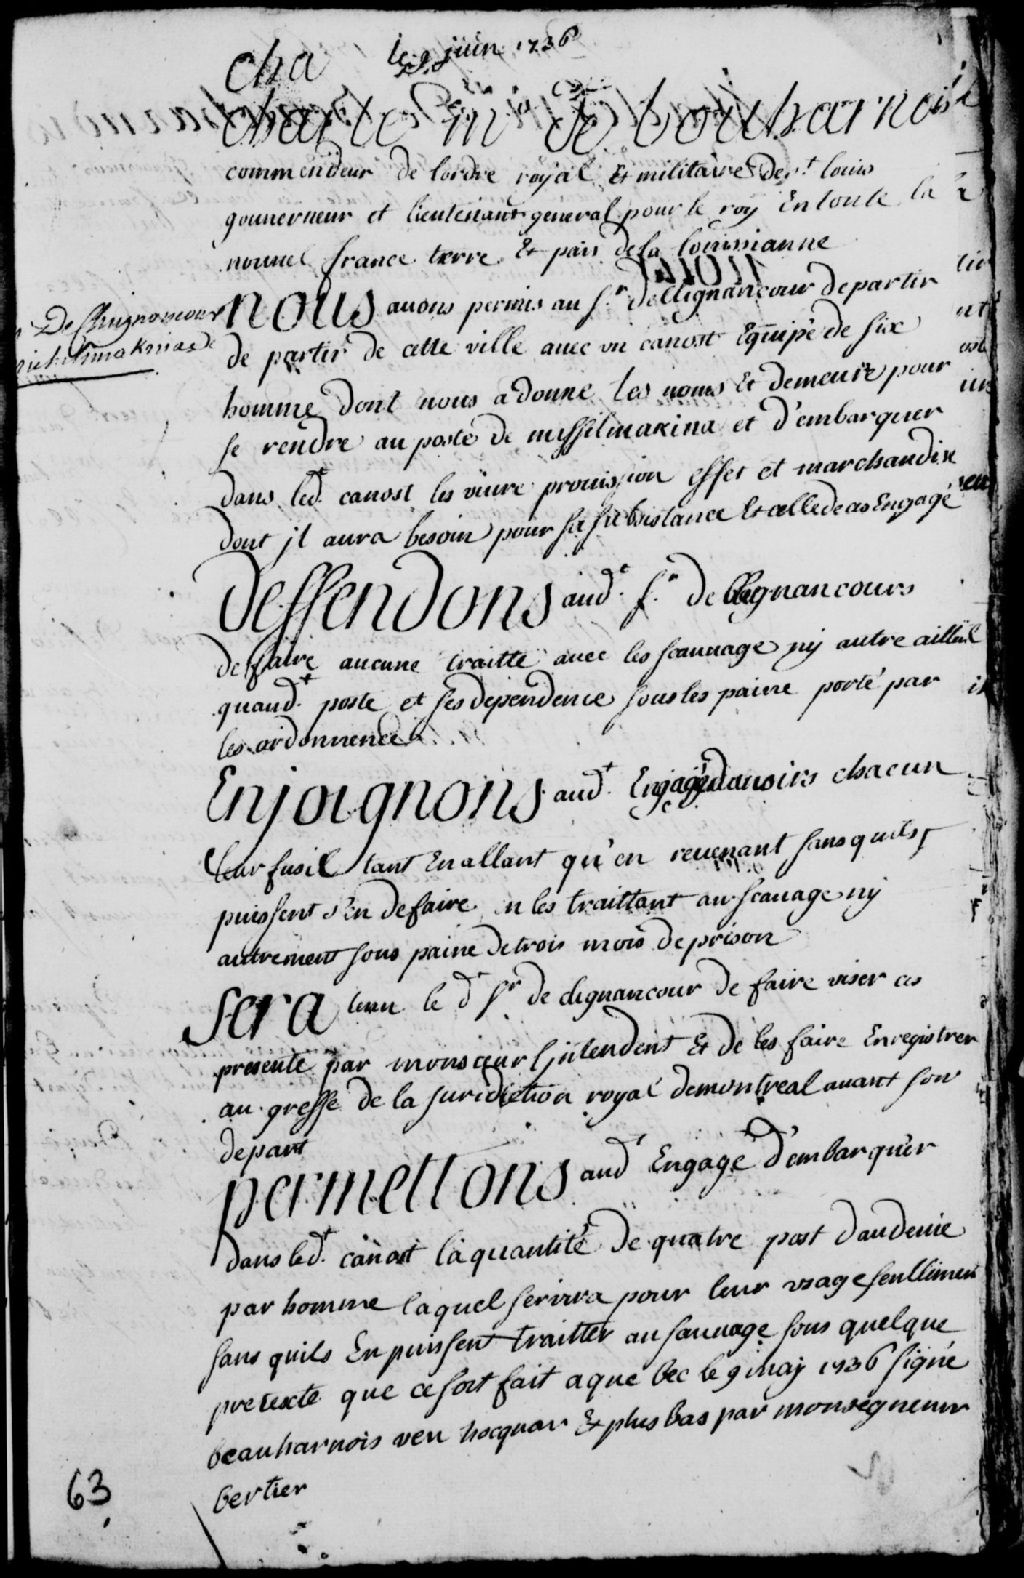 le 9 juin 1736
cha
charle m de bouharnois
commendeur de lordre royal Et militaire de st. louis
gouuerneur et lieutenant general pour le roy En toute la
nouuel france terre Et pais de la louissianne
nous auons permis au sr. dellignancour de partir
de partir de cette ville auec vn canost Equipé de six
homme dont nous a donne les noms Et demeure pour
se rendre au poste de missilmakina et d'embarquer
dans led. canost les viure prouission effet et marchandise
dont jl aura besoin pour sa subsistance Et celle de ces Engagé
De Clignancour
michilimakinac
deffendons aud. sr. de llignancours
de faire aucune traitte auec les sauuage ny autre ailleul
quaud. poste et ses dependence sous les paine porté par
les ordonnence
Enjoignons aud. Engagé dauoirs chacun
leur fusil tant En allant qu'en reuenant sans quils
puissent s'en defaire n les traittant au sauage ny
autrement sous paine de trois mois de prison
sera tenu le d sr de clignancour de faire viser ces
presente par monsieur lintendent Et de les faire Enregistrer
au greffe de la juridiction royal de montreal auant son
depart
permettons aud Engagé d'embarquer
dans led. canost la quantité de quatre post daudeuie
par homme laquel seruira pour leur vsage seullement
sans quils En puissent traitter au sauuage sous quelque
pretexte que ce soit fait a quebec le 9 maj 1736 signé
beauharnois veu hocquar & plus bas par monsegneur
bertier
63